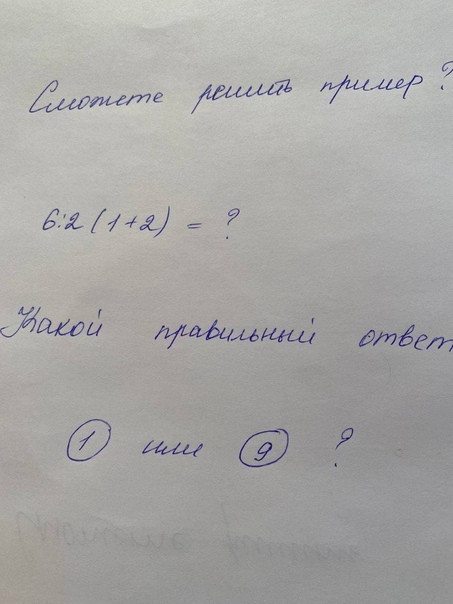 Сможете решить пример?
6:2(1+2) = ?
Какой правильный ответ
1 или 9 ?